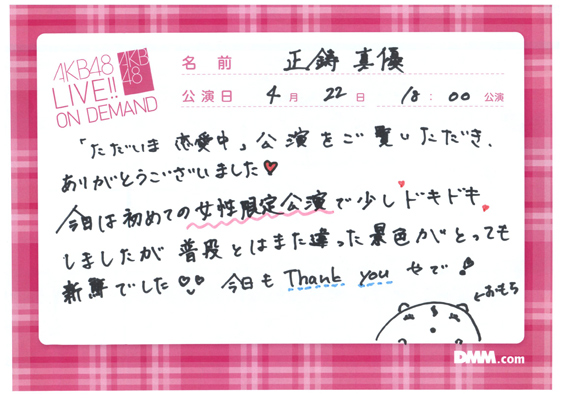 AKB48
LIVE!!
ON DEMAND
AKB
48
名前 正鋳真優
公演日 4月22日 18:00 公演
「ただいま 恋愛中」公演をご覧いただき、
ありがとうございました
今日は初めての女性限定公演で少しドキドキ
しましたが 普段とはまた違った景色がとっても
新鮮でした 今日も Thank you やで!
←おもち
DMM.com